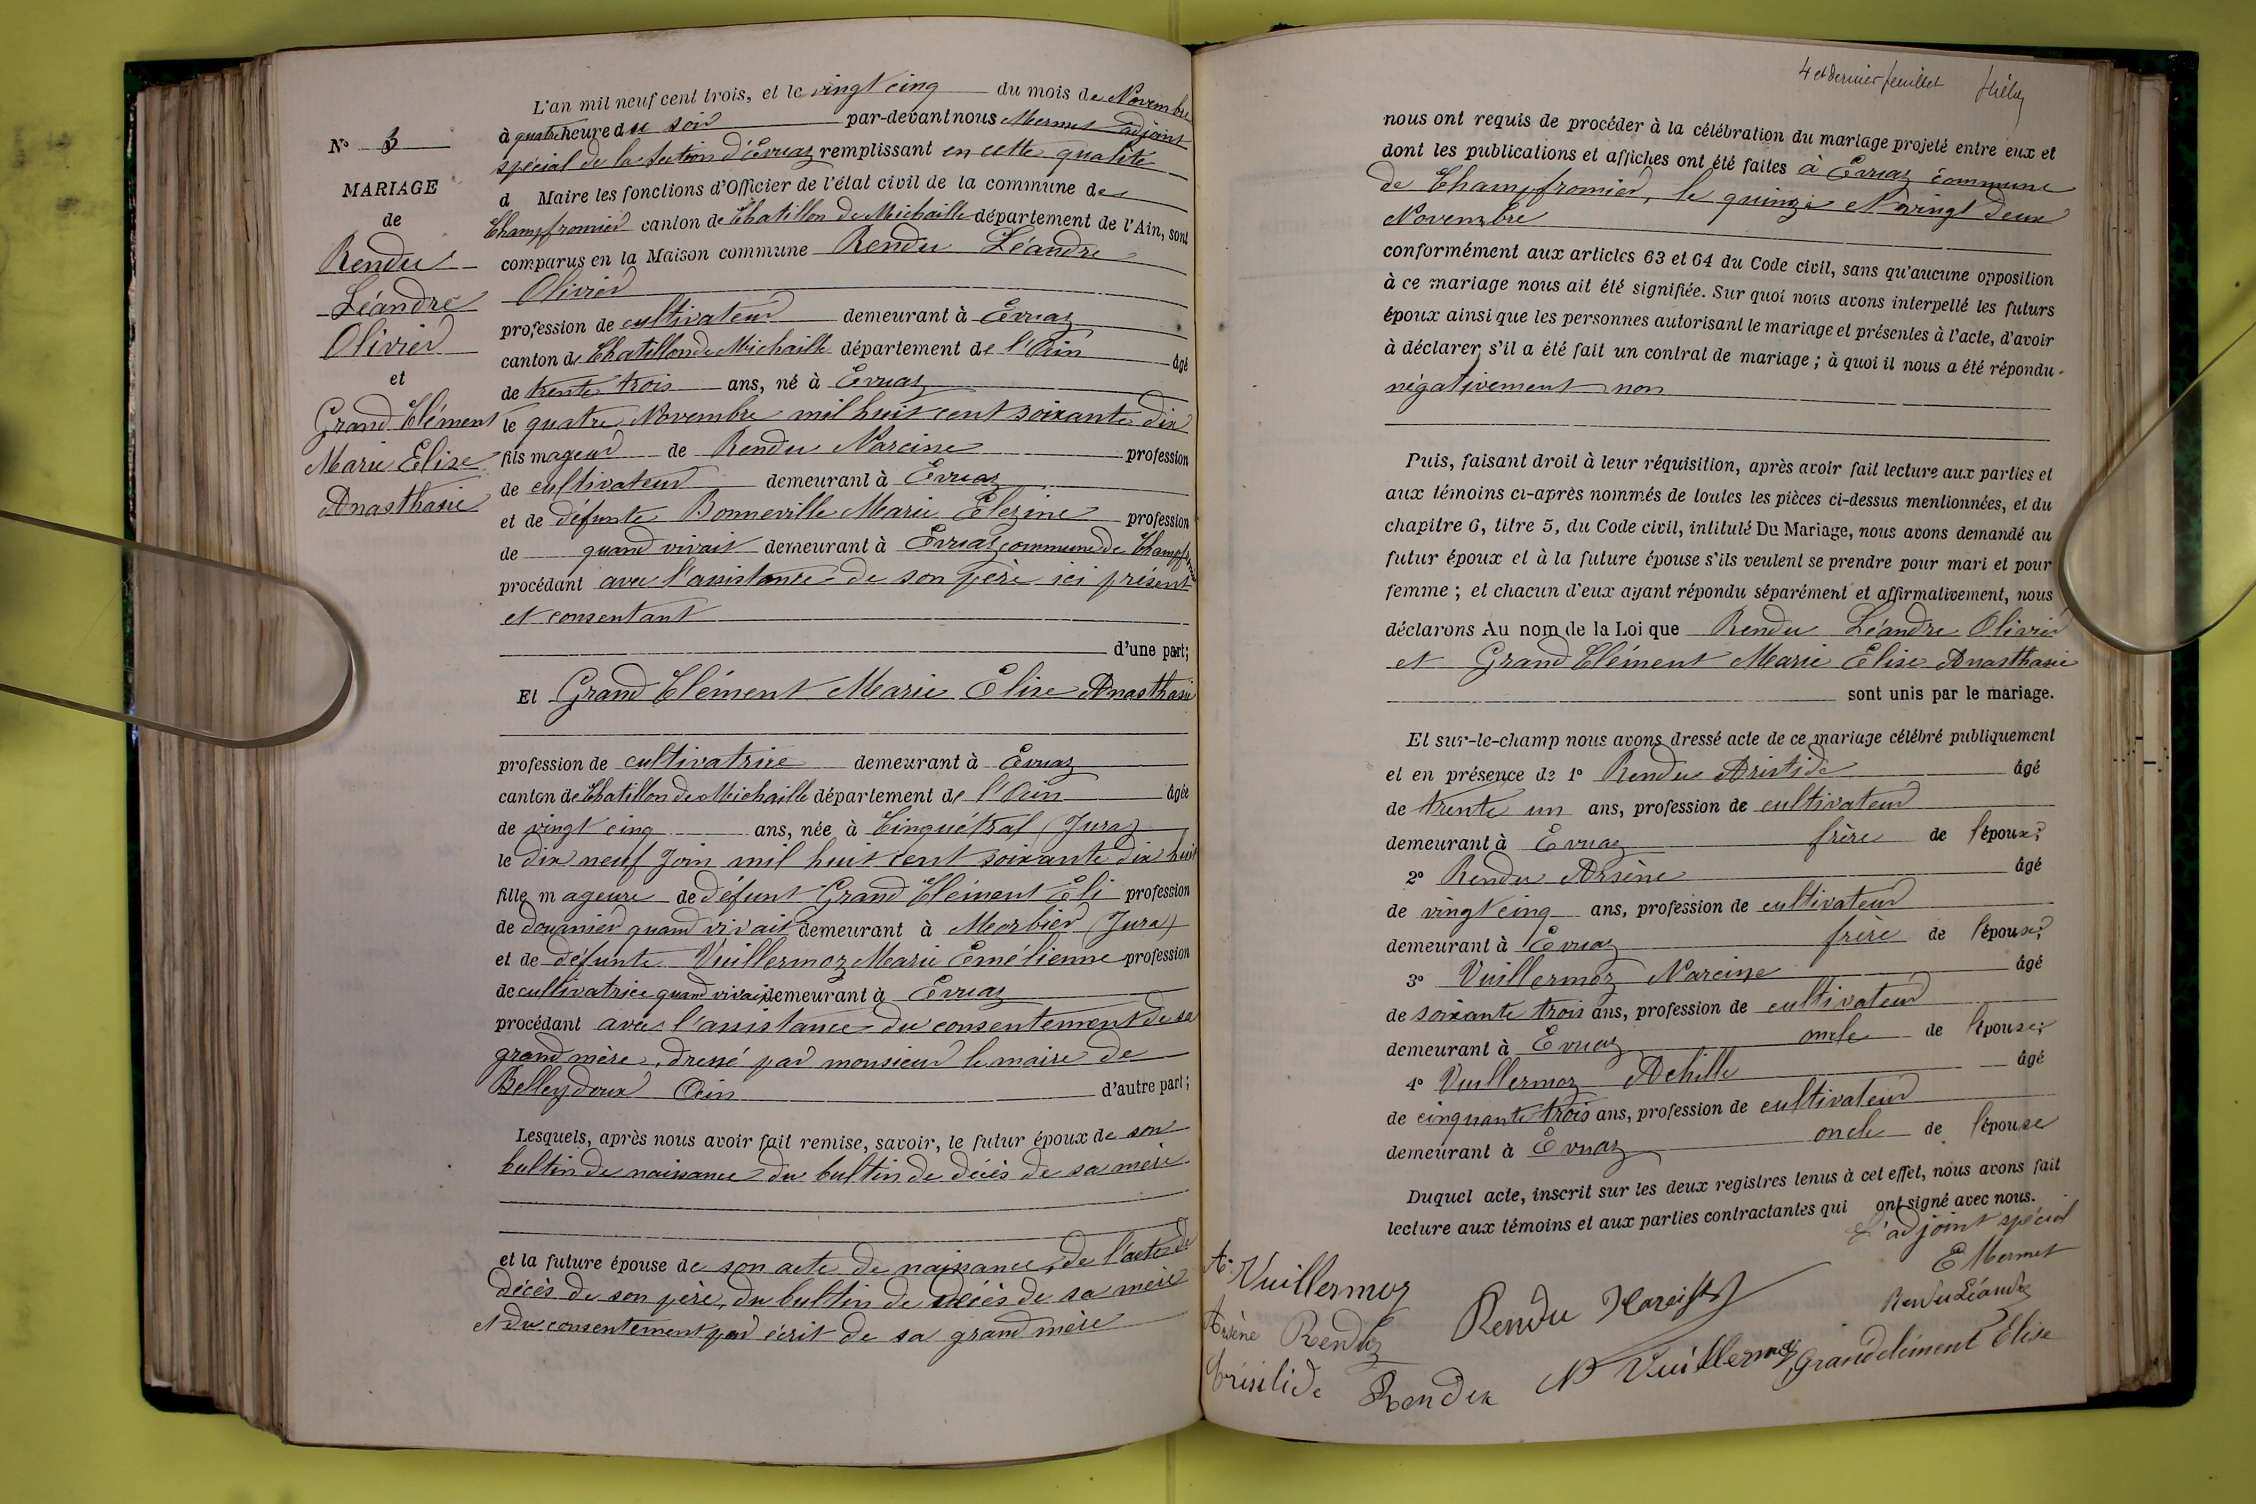 L'an mil neuf cent trois, et le vingt cinq du mois de Novembre
à quatre heure du soir par-devant nous Mermet adjoint
spécial de la section d'Evuaz remplissant en cette qualité
d Maire les fonctions d'Officier de l'état civil de la commune de
Champfromier canton de Chatillon de Michaille département de l'Ain, sont
comparus en la Maison commune Rendu Léandre
Olivier
profession de cultivateur demeurant à Evuaz
canton de Chatillon de Michaille département de l'Ain âgé
de trente trois ans, né à Evuaz
le quatre Novembre mil huit cent soixante dix
fils mageur de Rendu Narcisse profession
de cultivateur demeurant à Evuaz
et de défunte Bonneville Marie Elezine profession
de quand vivait demeurant à Evuaz commune de Champfromier
procédant avec l'assistance de son père ici présent
et consentant
d'une part;
Et Grand Clément Marie Elise Anasthasie
profession de cultivatrice demeurant à Evuaz
canton de Chatillon de Michaille département de l'Ain âgée
de vingt cinq ans, née à Cinquétral (Jura)
le dix neuf Join mil huit cent soixante dix huit
fille mageure de défunt Grand Clément Eli profession
de douanier quand vivait demeurant à Morbier (Jura)
et de défunte Vuillermoz Marie Emélienne profession
de cultivatrice quand vivait demeurant à Evuaz
procédant avec l'assistance du consentement de sa
grand mère, dressé par monsieur le maire de
Belleydoux Ain d'autre part;
Lesquels, après nous avoir fait remise, savoir, le futur époux de son
bultin de naissance du bultin de décès de sa mère
et la future épouse de son acte de naissance, de l'acte de
décès de son père, du bultin de décès de sa mère
et du consentement par écrit de sa grand mère
N° 3
MARIAGE
de
Rendu
Léandre
Olivier
et
Grand Clément
Marie Elise
Anasthasie
4 et dernier feuillet
nous ont requis de procéder à la célébration du mariage projeté entre eux et
dont les publications et affiches ont été faites à Evuaz commune
de Champfromier, le quinze et vingt deux
Novembre
conformément aux articles 63 et 64 du Code civil, sans qu'aucune opposition
à ce mariage nous ait été signifiée. Sur quoi nous avons interpellé les futurs
époux ainsi que les personnes autorisant le mariage et présentes à l'acte, d'avoir
à déclarer s'il a été fait un contrat de mariage; à quoi il nous a été répondu
négativement non
Puis, faisant droit à leur réquisition, après avoir fait lecture aux parties et
aux témoins ci-après nommés de toutes les pièces ci-dessus mentionnées, et du
chapitre 6, titre 5, du Code civil, intitulé Du Mariage, nous avons demandé au
futur époux et à la future épouse s'ils veulent se prendre pour mari et pour
femme; et chacun d'eux ayant répondu séparément et affirmativement, nous
déclarons Au nom de la Loi que Rendu Léandre Olivier
et Grand Clément Marie Elise Anasthasie
sont unis par le mariage.
Et sur-le-champ nous avons dressé acte de ce mariage célébré publiquement
et en présence de 1° Rendu Aristide âgé
de trente un ans, profession de cultivateur
demeurant à Evuaz frère de l'époux;
2° Rendu Arsène âgé
de vingt cinq ans, profession de cultivateur
demeurant à Evuaz frère de l'époux;
3° Vuillermoz Narcisse âgé
de soixante trois ans, profession de cultivateur
demeurant à Evuaz oncle de l'épouse;
4° Vuillermoz Achille âgé
de cinquante trois ans, profession de cultivateur
demeurant à Evuaz oncle de l'épouse
Duquel acte, inscrit sur les deux registres tenus à cet effet, nous avons fait
lecture aux témoins et aux parties contractantes qui ont signé avec nous.
L'adjoint spécial
E Mermet
A. Vuillermoz
Rendu Narcisse
Rendu Léandre
Arsène Rendu
N Vuillermoz
Grandclément Elise
Aristide Rendu